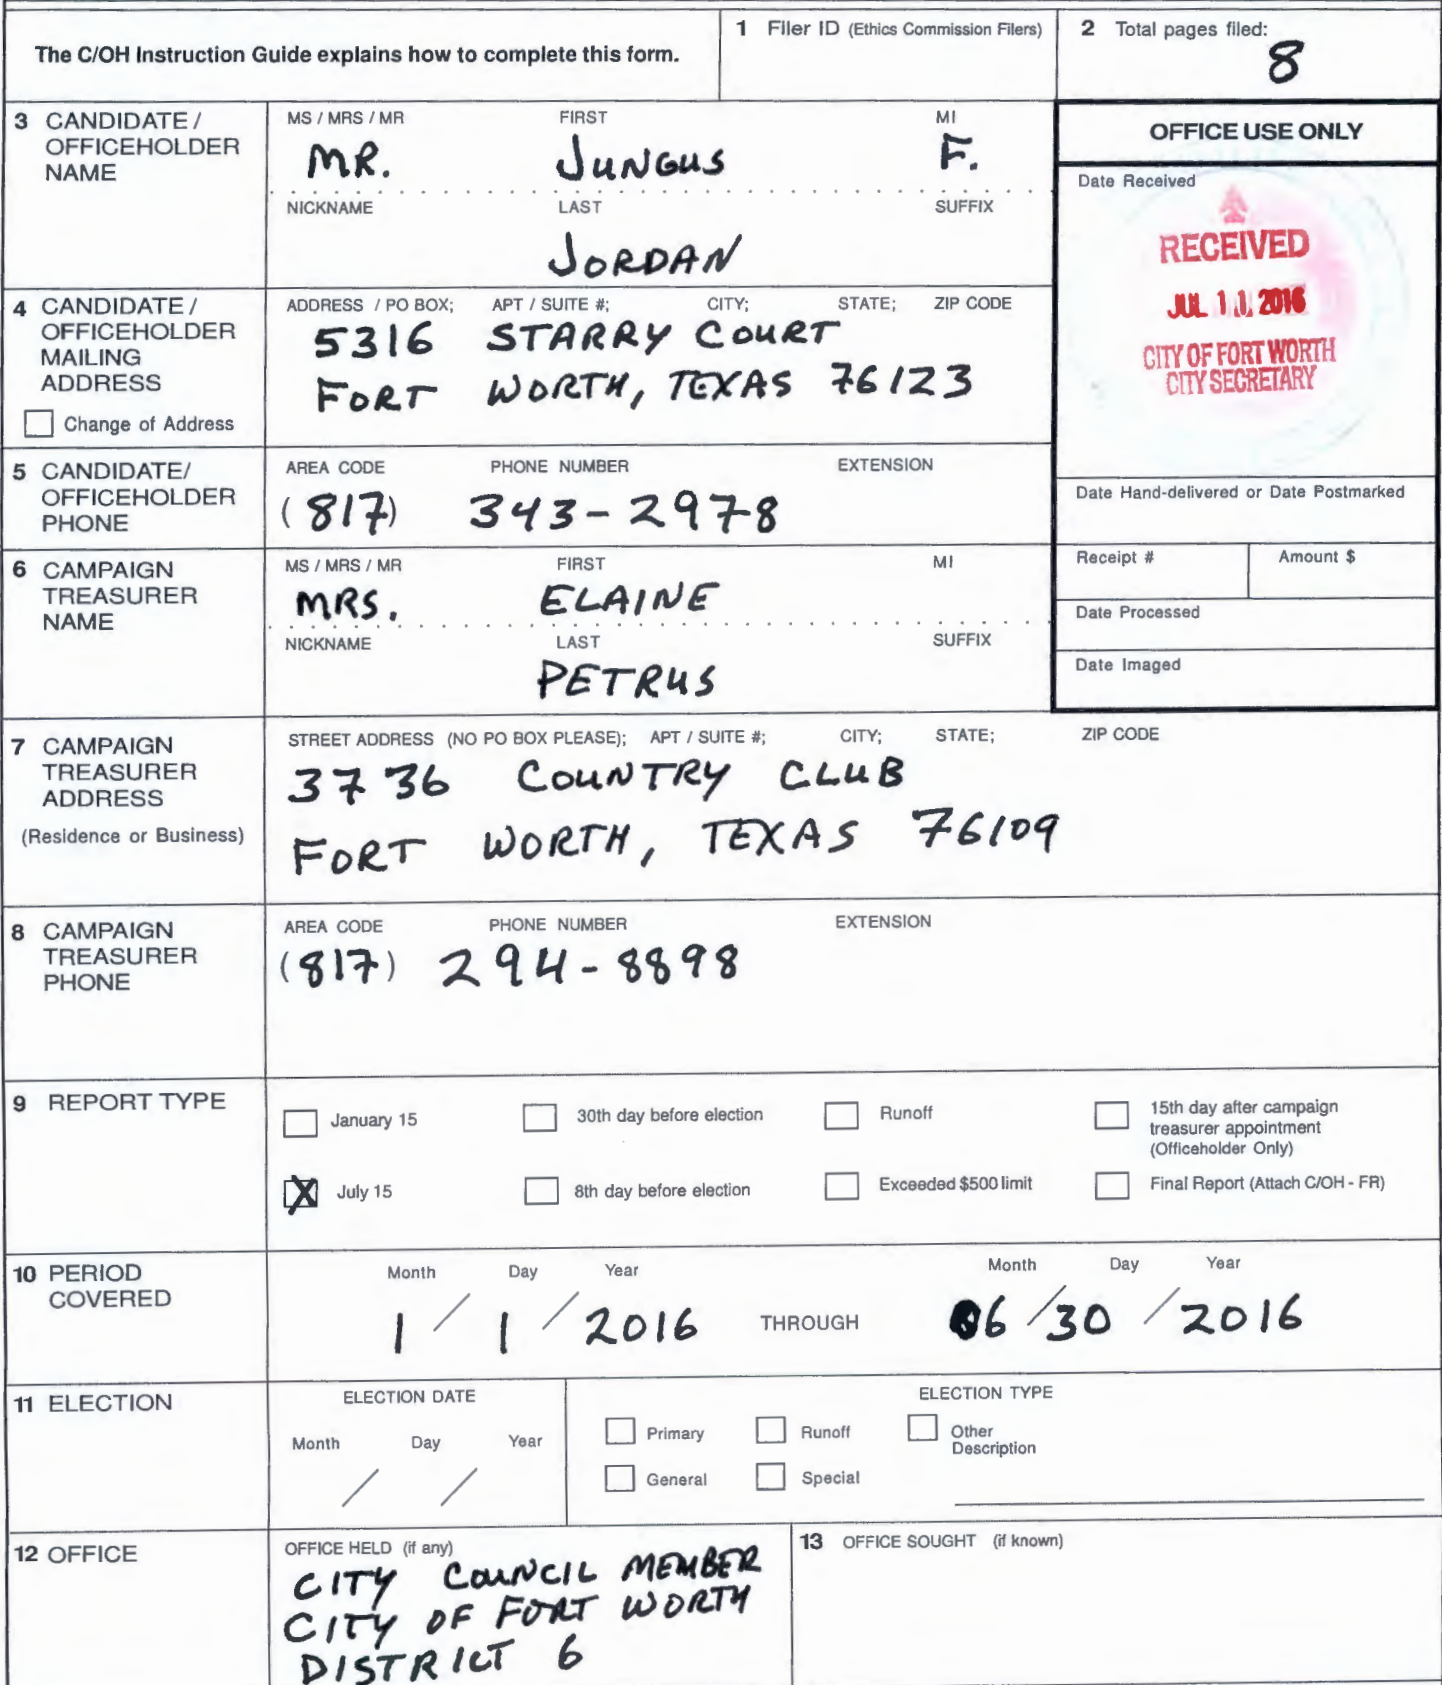 The C/OH Instruction Guide explains how to complete this form.
1 Filer ID (Ethics Commission Filers)
2 Total pages filed:
8
3 CANDIDATE / OFFICEHOLDER NAME
MS / MRS / MR FIRST MI
MR. JUNGUS F.
NICKNAME LAST SUFFIX
JORDAN
OFFICE USE ONLY
Date Received
RECEIVED
JUL 11 2016
CITY OF FORT WORTH
CITY SECRETARY
4 CANDIDATE / OFFICEHOLDER MAILING ADDRESS
Change of Address
ADDRESS / PO BOX; APT / SUITE #; CITY; STATE; ZIP CODE
5316 STARRY COURT
FORT WORTH, TEXAS 76123
5 CANDIDATE/ OFFICEHOLDER PHONE
AREA CODE PHONE NUMBER EXTENSION
(817) 343-2978
Date Hand-delivered or Date Postmarked
Receipt # Amount $
Date Processed
Date Imaged
6 CAMPAIGN TREASURER NAME
MS / MRS / MR FIRST MI
MRS. ELAINE
NICKNAME LAST SUFFIX
PETRUS
7 CAMPAIGN TREASURER ADDRESS
(Residence or Business)
STREET ADDRESS (NO PO BOX PLEASE); APT / SUITE #; CITY; STATE; ZIP CODE
3736 COUNTRY CLUB
FORT WORTH, TEXAS 76109
8 CAMPAIGN TREASURER PHONE
AREA CODE PHONE NUMBER EXTENSION
(817) 294-8898
9 REPORT TYPE
January 15
30th day before election
Runoff
15th day after campaign treasurer appointment (Officeholder Only)
X July 15
8th day before election
Exceeded $500 limit
Final Report (Attach C/OH - FR)
10 PERIOD COVERED
Month Day Year
1 / 1 / 2016
THROUGH
Month Day Year
06 / 30 / 2016
11 ELECTION
ELECTION DATE
Month Day Year
/ /
ELECTION TYPE
Primary
Runoff
Other Description
General
Special
12 OFFICE
OFFICE HELD (if any)
CITY COUNCIL MEMBER
CITY OF FORT WORTH
DISTRICT 6
13 OFFICE SOUGHT (if known)